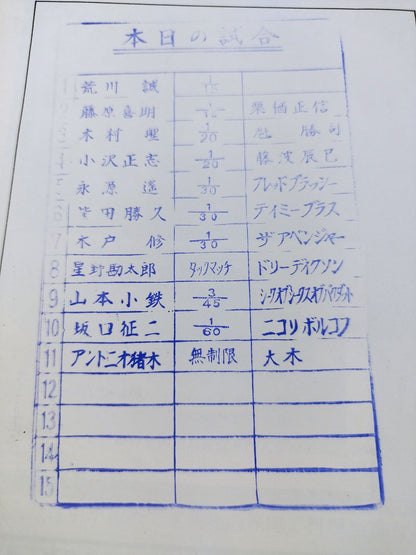 本日の試合
1 荒川 誠 1/15
2 藤原喜明 1/15 栗栖正信
3 木村 聖 1/20 勝司
4 小沢正志 1/20 藤波辰巳
5 永源 遥 1/30 フレッドブラッシー
6 柴田勝久 1/30 テイミーブラス
7 木戸 修 1/30 ザアベンジャー
8 星野勘太郎 タッグマッチ ドリーディクソン
9 山本小鉄 3/45
10 坂口征二 1/60 ニコリボルコフ
11 アントニオ猪木 無制限 大木
12
13
14
15